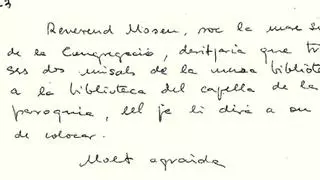 3
Reverend Mossen, soc la mare S
de la Congregació, desitjaria que tr
ses dos missals de la meva bibliote
a la biblioteca del capellà de la
parroquia, ell ja li dirà a on
de colocar.
Molt agraida